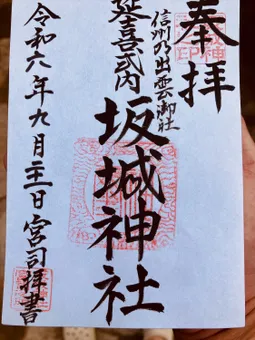 奉拝
信州乃出雲御社
延喜式内
坂城神社
令和六年九月二十一日
宮司拝書